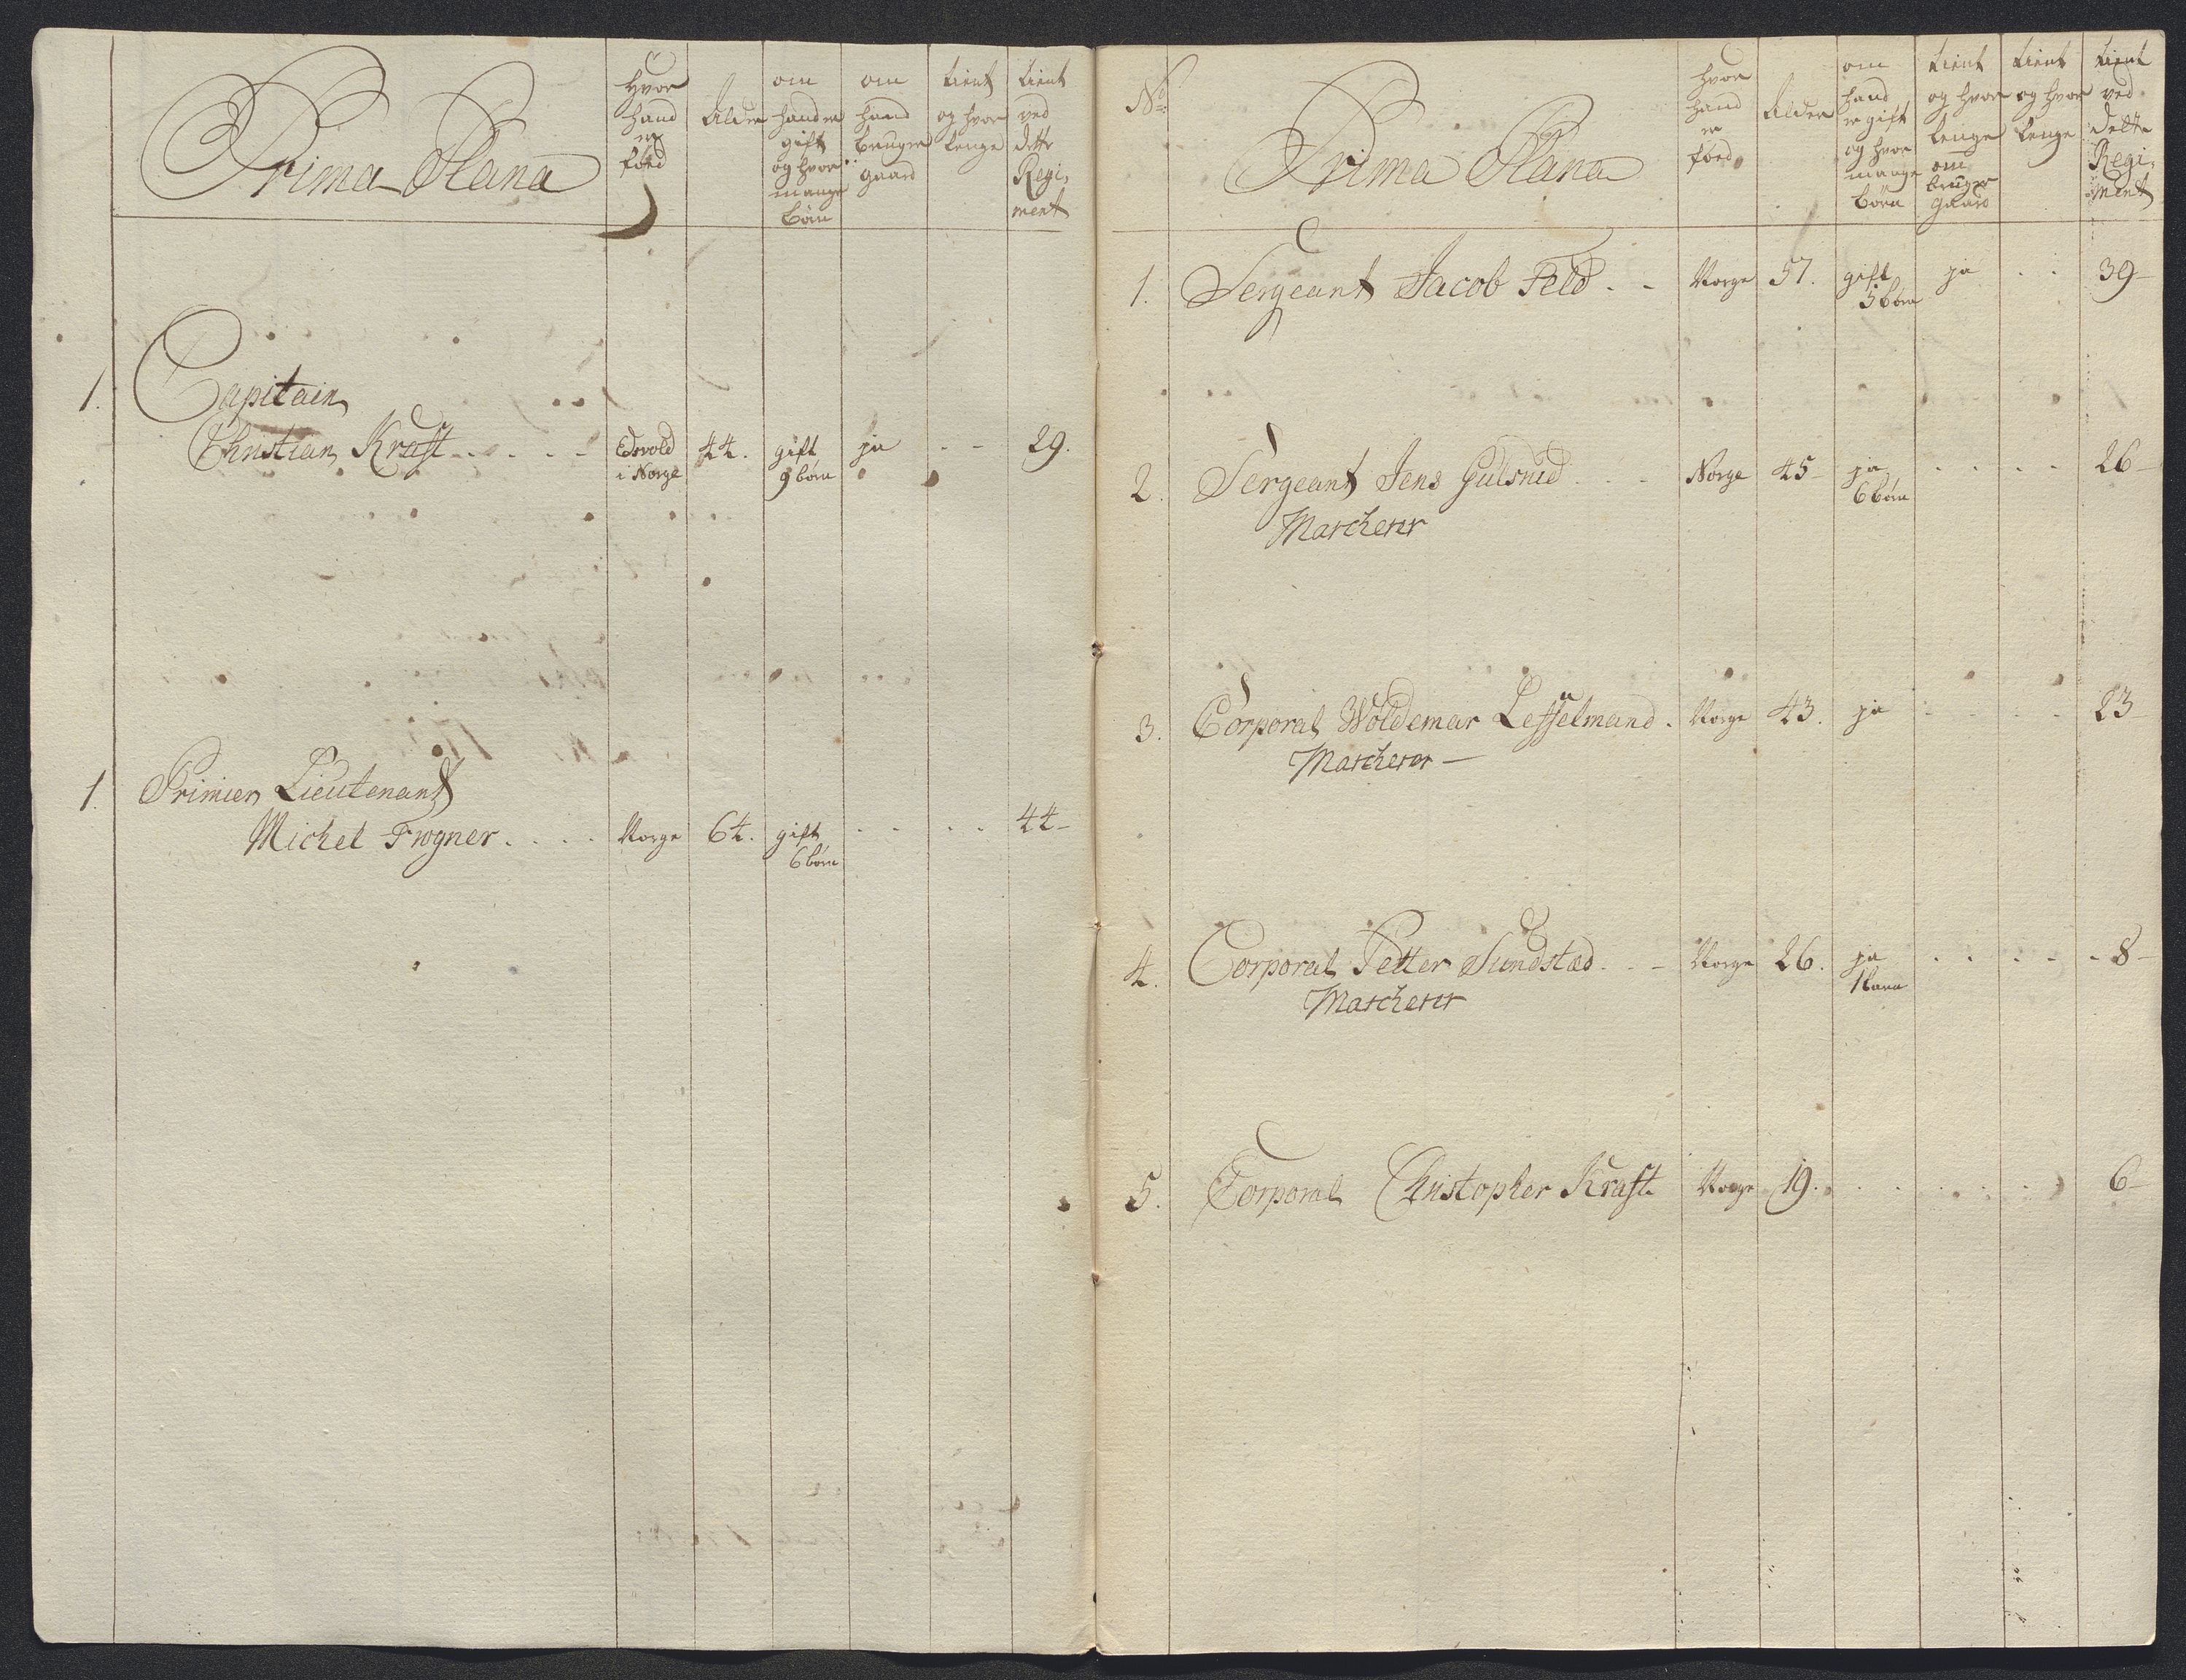 Prima Plana
Hvor
hand
er
föed
Alder
om
hand er
gift
og hvor
mange
börn
om
hand
bruger
gaard
tient
og hvor
lenge
tient
ved
dette
Regi-
ment
1. Capitain
Christian Kraft - - - - - Edsvold 44. gift ja - - 29.
i Norge 9 börn
1. Primier Lieutenant
Michel Frogner . . . . Norge 64. gift . . . . 44-
6 börn
No
Prima Plana
hvor
hand
er
föed
Alder
om
hand
er gift
og hvor
mange
börn
tient
og hvor
lenge
om
bruger
gaard
tient
og hvor
lenge
tient
ved
dette
Regi-
ment
1. Sergeant Jacob Feld - - Norge 57. gift ja . . 39-
5 börn
2. Sergeant Jens Gulsnid - - - Norge 45- ja . . . . 26-
6 börn
Marcherer
3. Corporal Woldemar Lesselmand . Norge 43. ja . . . . 23-
Marcherer -
4. Corporal Petter Sundstad - - - Norge 26. ja . . . . . 8-
1 barn
Marcherer
5. Corporal Christopher Kraft Norge 19. . . . . . . 6-